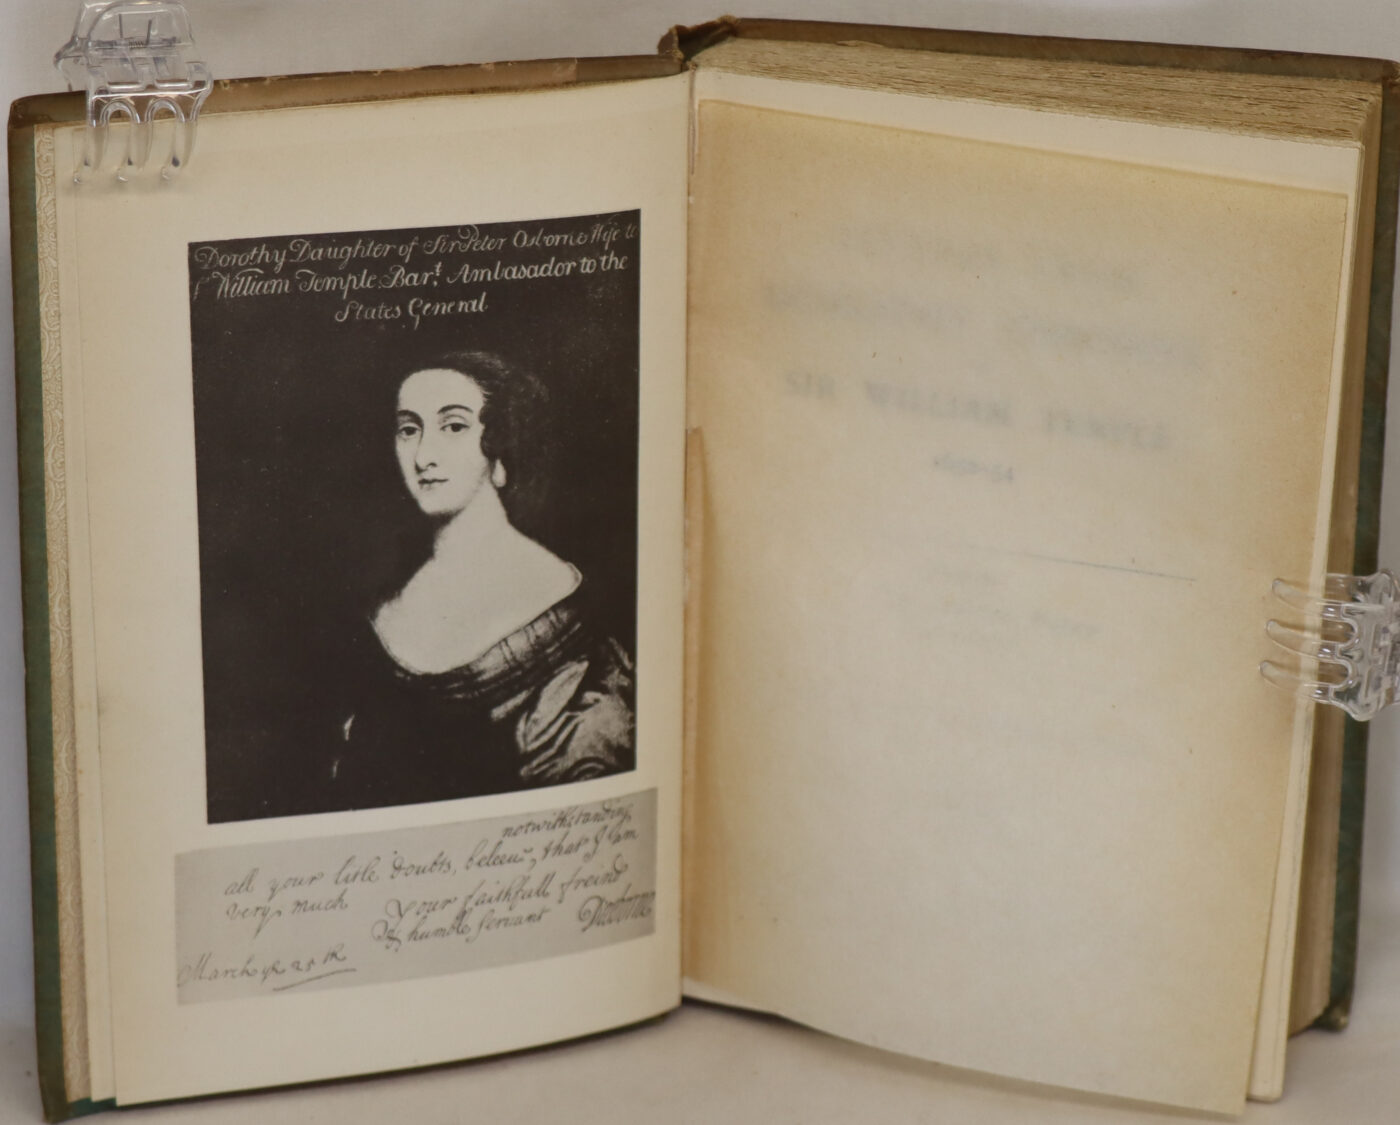 Dorothy Daughter of Sir Peter Osborne Wife to
Sr William Temple Bart. Ambasador to the
States General
notwithstanding
all your litle doubts, beleeve that I am
very much
Your faithfull freind
& humble servant
DOsborne
March ye 25th
SIR WILLIAM TEMPLE